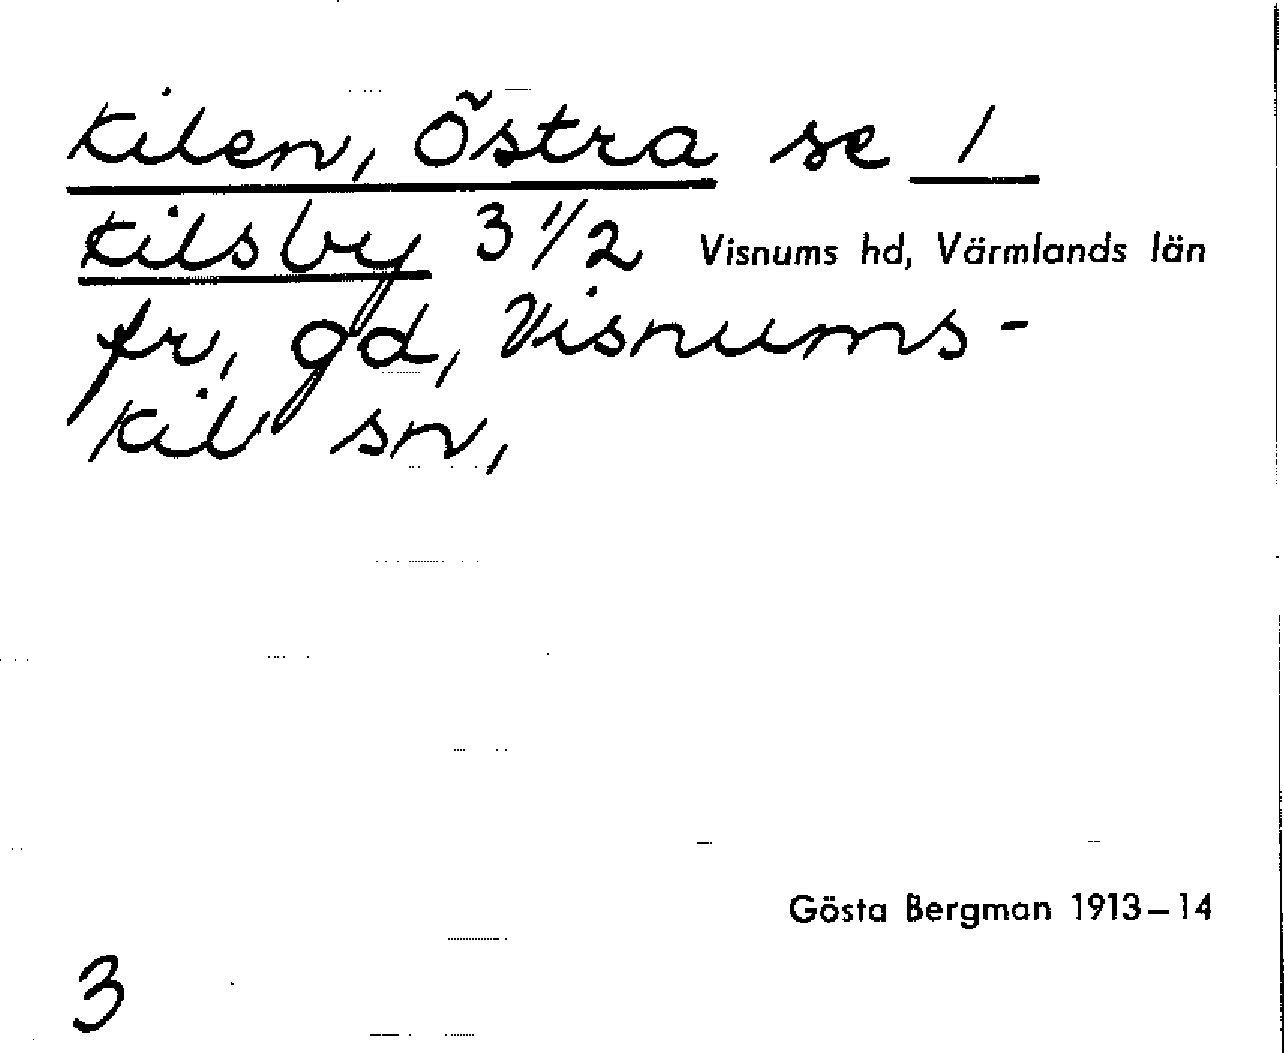 Kilen, Östra se 1
Kilsby 3 1/2 Visnums hd, Värmlands län
fr, gd, Visnums-
Kil sn,
Gösta Bergman 1913–14
3